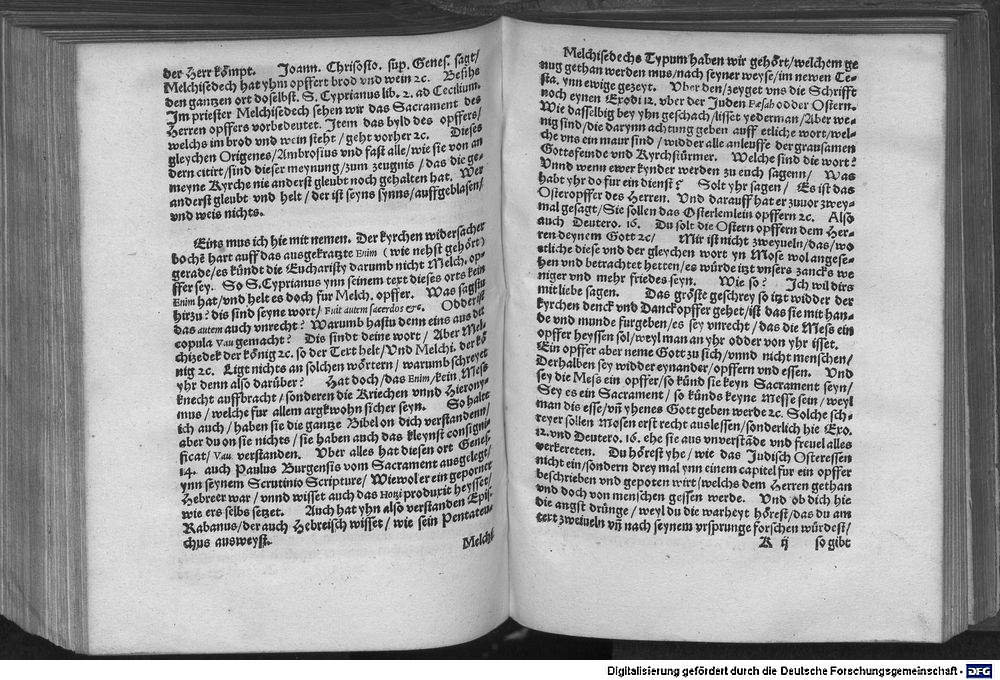 der Herr kömpt. Joann. Chrisosto. sup. Genes. sagt/
Melchisedech hat yhm opffert brod vnd wein ꝛc. Besihe
den gantzen ort doselbst. S. Cyprianus lib. 2. ad Cecilium.
Im priester Melchisedech sehen wir das Sacrament des
Herren opffers vorbedeutet. Item das byld des opffers/
welchs im brod vnd wein steht/ geht vorher ꝛc. Dieses
gleychen Origenes/ Ambrosius vnd fast alle/ wie sie von an
dern citirt/ sind dieser meynung/ zum zeugnis/ das die ge-
meyne Kyrche nie anderst gleubt noch gehalten hat. Wer
anderst gleubt vnd helt/ der ist seyns synns/ auffgeblasen/
vnd weis nichts.
Eins mus ich hie mit nemen. Der kyrchen widersacher
bochẽ hart auff das ausgekratzte Enim (wie nehst gehört)
gerade/ es kündt die Eucharisty darumb nicht Melch. op-
ffer sey. So S. Cyprianus ynn seinem text dieses orts kein
Enim hat/ vnd helt es doch fur Melch. opffer. Was sagstu
hirzu? dis sind seyne wort/ Fuit autem sacerdos &c. Odder ist
das autem auch vnrecht? Warumb hastu denn eins aus dic
copula Vau gemacht? Dis sindt deine wort/ Aber Mel-
chizedek der könig ꝛc. so der Text helt/ Vnd Melchi. der kö
nig ꝛc. Ligt nichts an solchen wörtern/ warumb schreyet
yhr denn also darüber? Hat doch/ das Enim/ kein Mess
knecht auffbracht/ sonderen die Kriechen vnnd Hierony-
mus/ welche fur allem argkwohn sicher seyn. So haltet
ich auch/ haben sie die gantze Bibel on dich verstandenn/
aber du on sie nichts/ sie haben auch das kleynst consigni-
ficat/ Vau. verstanden. Vber alles hat diesen ort Genes.
14. auch Paulus Burgensis vom Sacrament ausgelegt/
ynn seynem Scrutinio Scripture/ Wiewol er ein geporner
Hebreer war/ vnnd wisset auch das Hotzi produxit heysset/
wie ers selbs setzet. Auch hat yhn also verstanden Epis-
Rabanus/ der auch Hebreisch wisset/ wie sein Pentateu-
chus ausweyst.
Melchi
Melchisedechs Typum haben wir gehört/ welchem ge
nug gethan werden mus/ nach seyner weyse/ im newen Te-
sta. ynn ewige gezeyt. Vber den/ zeyget vns die Schrifft
noch eynen Exodi 12. vber der Juden Pæsah odder Ostern.
Wie dasselbig bey yhn geschach/ lisset yederman/ Aber we-
nig sind/ die darynn achtung geben auff etliche wort/ wel-
che vns ein maur sind/ widder alle anleuffe der grausamen
Gottsfeunde vnd Kyrchstürmer. Welche sind die wort?
Vnnd wenn ewer kynder werden zu euch sagenn/ Was
habt yhr do fur ein dienst? Solt yhr sagen/ Es ist das
Osteropffer des Herren. Vnd darauff hat er zuuor zwey-
mal gesagt/ Sie sollen das Osterlemlein opffern ꝛc. Also
auch Deutero. 16. Du solt die Ostern opffern dem Her-
ren deynem Gott ꝛc/ Mir ist nicht zweyueln/ das/ wo
etliche diese vnd der gleychen wort yn Mose wol angese-
hen vnd betrachtet hetten/ es würde itzt vnsers zancks we
niger vnd mehr friedes seyn. Wie so? Ich wil dirs
mit liebe sagen. Das gröste geschrey so itzt widder der
kyrchen denck vnd Danckopffer gehet/ ist das sie mit han-
de vnd munde furgeben/ es sey vnrecht/ das die Mess ein
opffer heyssen sol/ weyl man an yhr odder von yhr isset.
Ein opffer aber neme Gott zu sich/ vnnd nicht menschen/
Derhalben sey widder eynander/ opffern vnd essen. Vnd
sey die Mess ein opffer/ so künd sie keyn Sacrament seyn/
Sey es ein Sacrament/ so künds keyne Messe sein/ weyl
man dis esse/ vñ yhenes Gott geben werde ꝛc. Solche sch-
reyer sollen Mosen erst recht auslessen/ sonderlich hie Exo.
12. vnd Deutero. 16. ehe sie aus vnuerstãde vnd freuel alles
verkereten. Du hörest yhe/ wie das Judisch Osteressen
nicht ein/ sondern drey mal ynn einem capitel fur ein opffer
beschrieben vnd gepoten wirt/ welchs dem Herren gethan
vnd doch von menschen gessen werde. Vnd ob dich hie
die angst drünge/ weyl du die warheyt hörest/ das du am
text zweiueln vñ nach seynem vrsprunge forschen würdest/
K ij so gibt
Digitalisierung gefördert durch die Deutsche Forschungsgemeinschaft - DFG